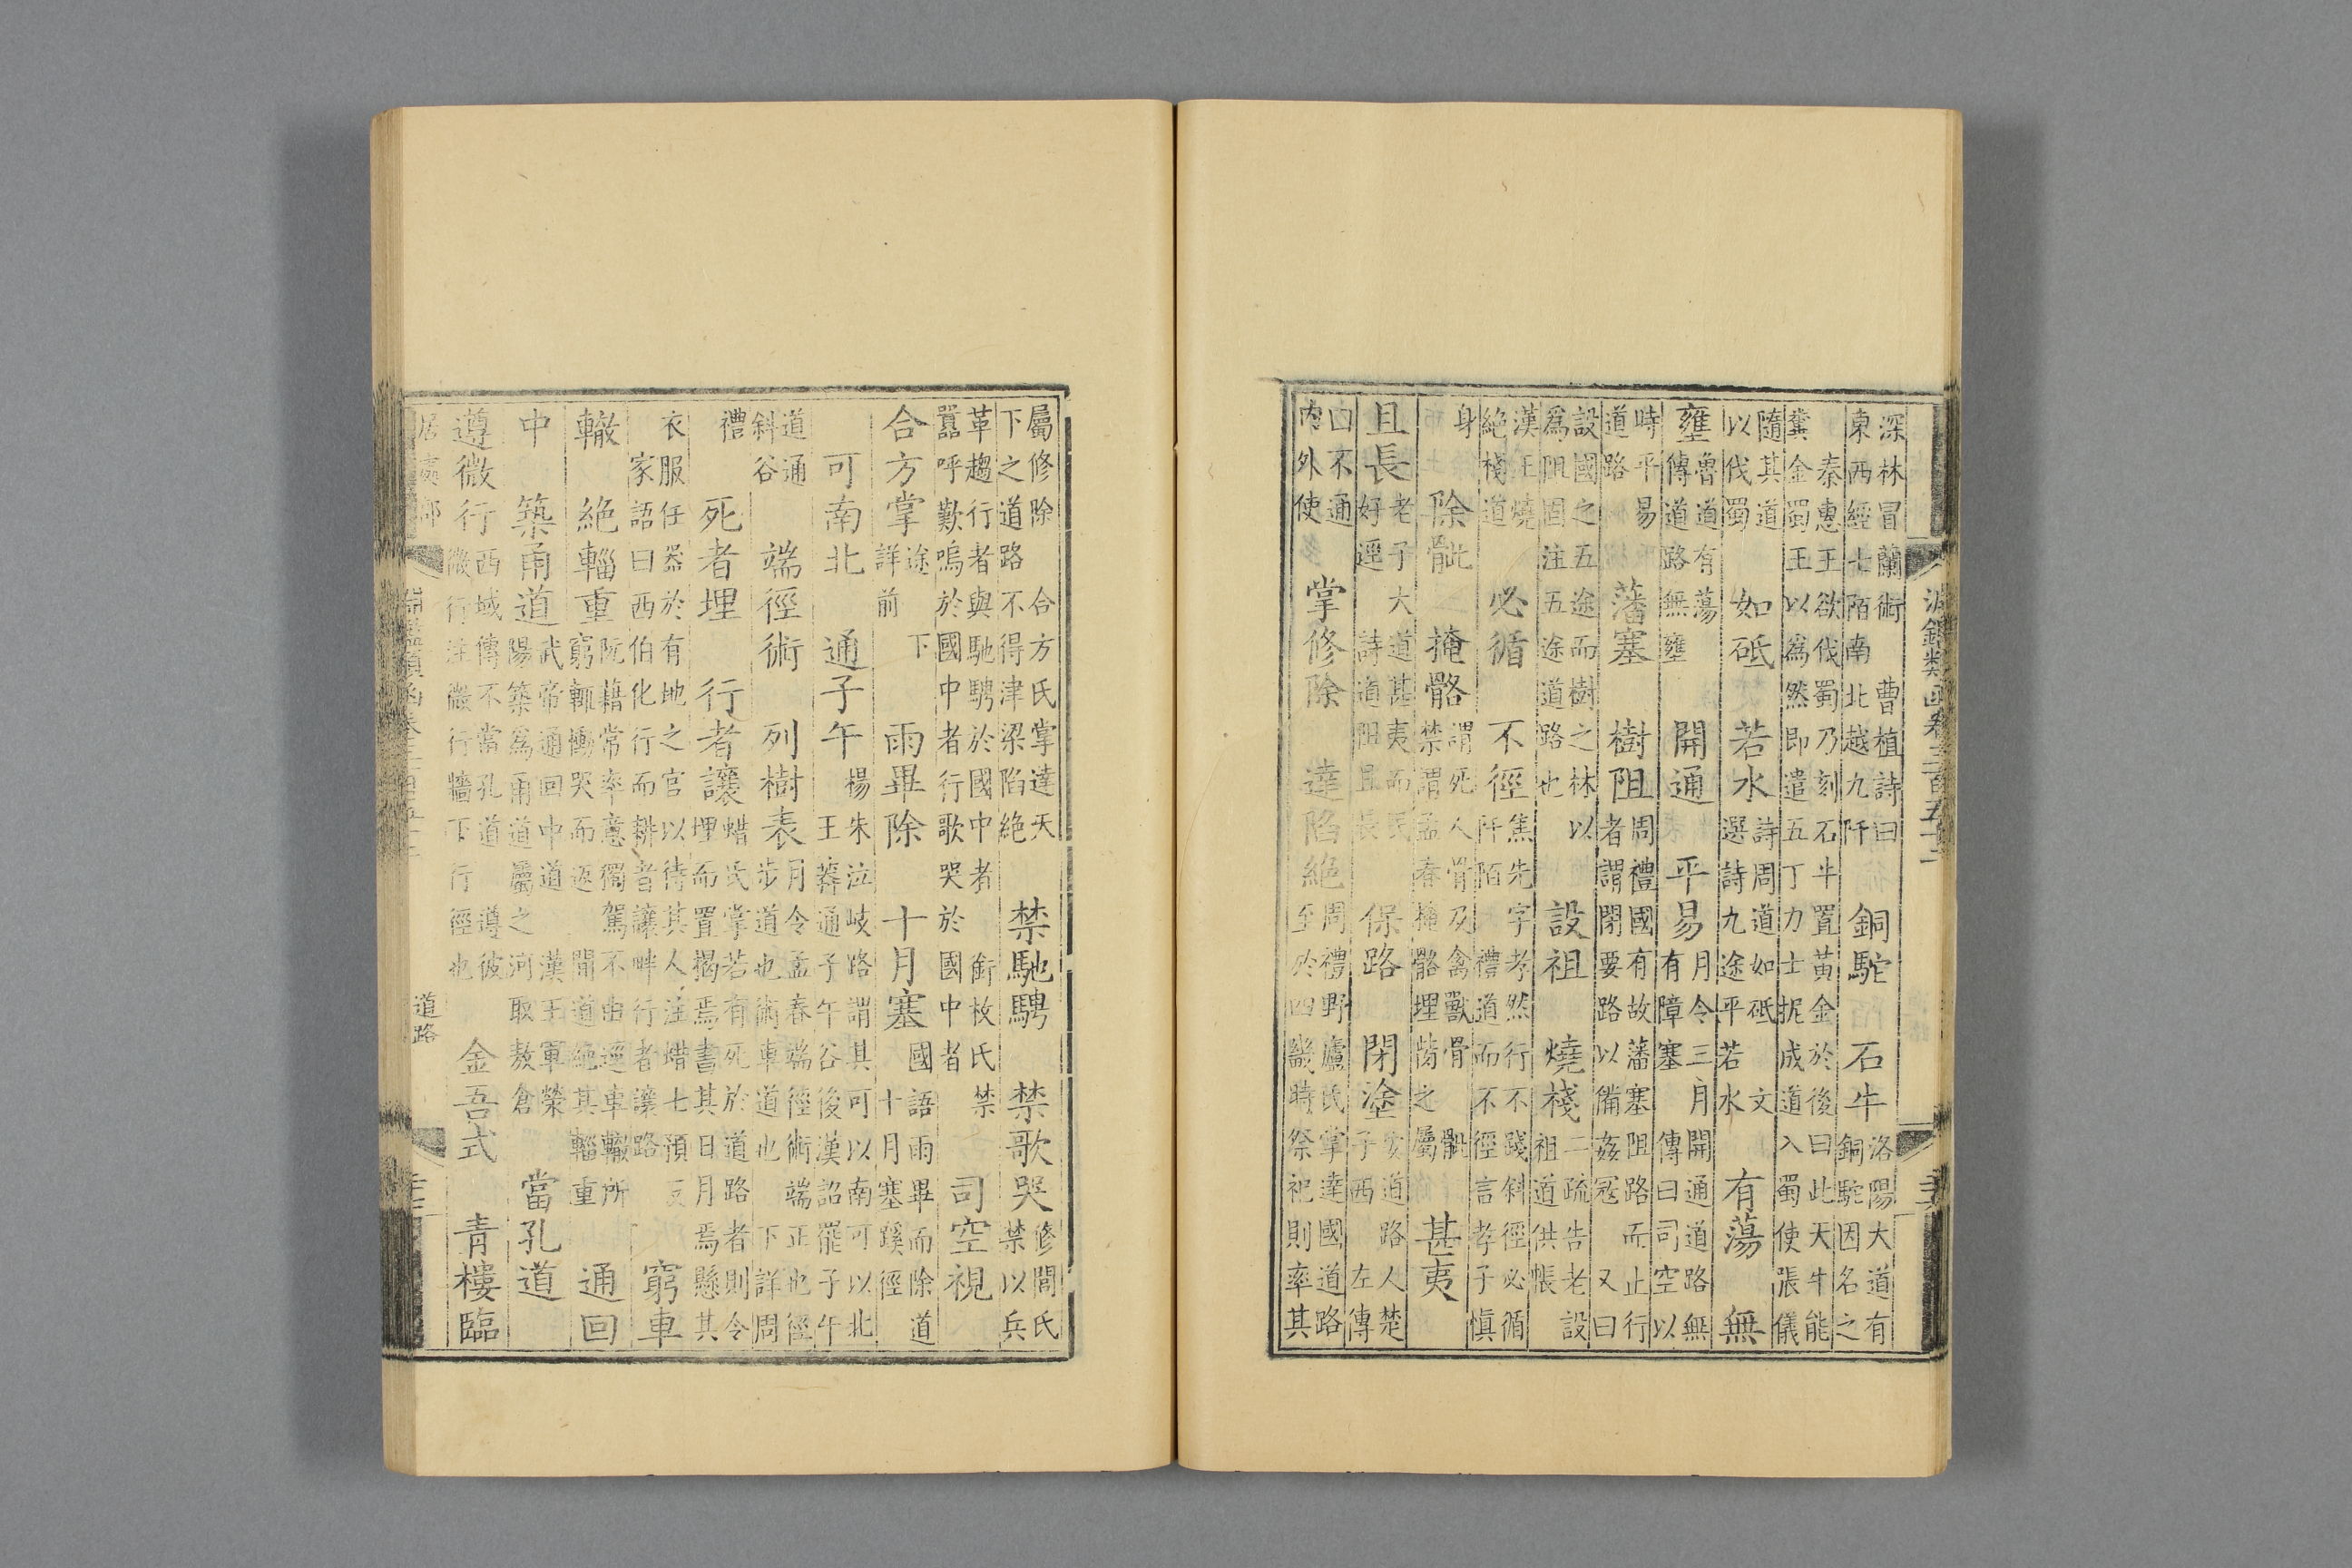 淵鑑類函卷三百五十二
深林冒蘭術 曹植詩曰
東西經七陌南北越九阡
銅駝 石牛
洛陽大道有
銅駝因名之
秦惠王欲伐蜀乃刻石牛置黃金於後曰此天牛能
糞金蜀王以為然即遣五丁力士扼成道入蜀使張儀
隨其道
以伐蜀
如砥 若水
詩周道如砥 文
選詩九途平若水
有蕩 無
壅
魯道有蕩
傳道路無壅
開通 平易
月令三月開通道路無
有障塞 傳曰司空以
時平易
道路
藩塞 樹阻
周禮國有故藩塞阻路而止行
者謂閉要路以備姦冦 又曰
設國之五途而樹之林以
為阻固注五途道路也
設祖 燒棧
二疏告老設
祖道供帳
漢王燒
絶棧道
必循 不徑
焦先字孝然行不踐斜徑必循
阡陌 禮道而不徑言孝子慎
身
除骴 掩骼
謂死人骨及禽獸骨 骴
禁謂孟春掩骼埋胔之屬
甚夷
且長
老子大道甚夷而民
好逕 詩道阻且長
保路 閉塗
安道路人楚
子西 左傳
口不通
內外使
掌修除 達陷絕
周禮野廬氏掌達國道路
至於四畿時祭祀則率其
屬修除 合方氏掌達天
下之道路 不得津梁陷絕
禁馳騁 禁歌哭
修閭氏
禁以兵
革趨行者與馳騁於國中者 銜枚氏禁
囂呼歎嗚於國中者行歌哭於國中者
司空視
合方掌
途 下
詳前
雨畢除 十月塞
國語雨畢而除道
十月塞蹊徑
可南北 通子午
楊朱泣岐路謂其可以南可以北
王莽通子午谷後漢詔罷子午
道通
斜谷
端徑術 列樹表
月令孟春端徑術端正也徑
步道也術車道也 下詳周
禮
死者埋 行者讓
蜡氏掌若有死於道路者則令
埋而置楬焉書其日月焉懸其
衣服任器於有地之官以待其人注蜡七預反
家語曰西伯化行而耕者讓畔行者讓路
窮車
轍
絶輜重
阮藉常率意獨駕不由逕車轍所
窮輒慟哭而返 閒道絶其輜重
通回
中
築甬道
武帝通回中道 漢王軍滎
陽築為甬道屬之河取敖倉
當孔道
遵微行
西域傳不當孔道 遵彼
微行注微行牆下行徑也
金吾式 青樓臨
道路